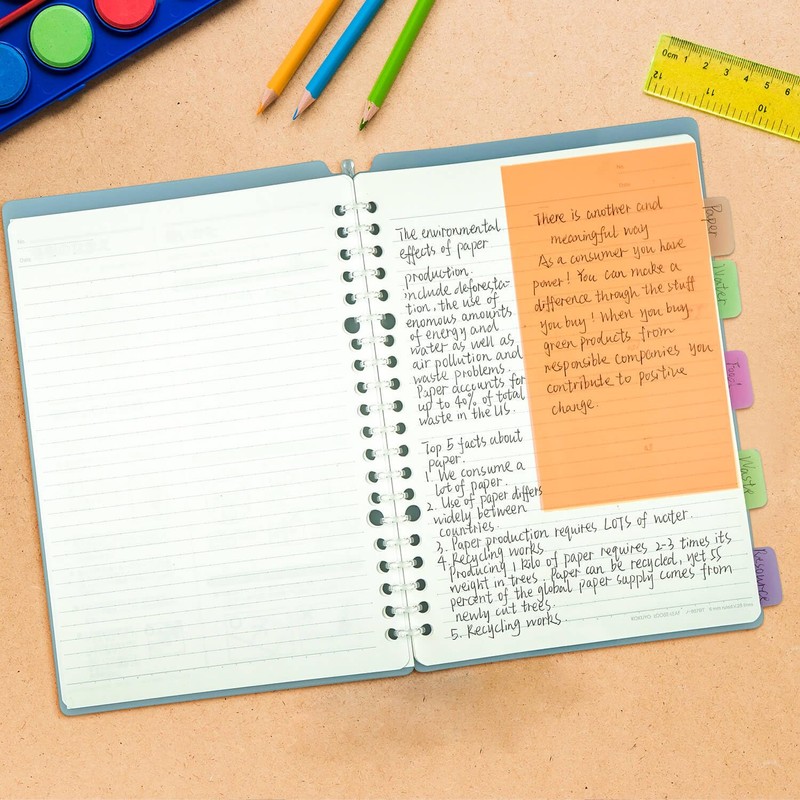 The environmental
effects of paper
production.
include deforesta-
tion, the use of
enomous amounts
of energy and
water as well as
air pollution and
waste problems.
Paper accounts for
up to 40% of total
waste in the US.
Top 5 facts about
paper.
1. We consume a
lot of paper.
2. Use of paper differs
widely between
countries.
3. Paper production requires LOTS of water.
4. Recycling works
Producing 1 kilo of paper requires 2-3 times its
weight in trees. Paper can be recycled, yet 55
percent of the global paper supply comes from
newly cut trees.
5. Recycling works.
There is another and
meaningful way
As a consumer you have
power! You can make a
difference through the stuff
you buy! When you buy
green products from
responsible companies you
contribute to positive
change.
Paper
Water
Food
Waste
Resource
No.
Date
No.
Date
KOKUYO LOOSE-LEAF
0cm 1 2 3 4 5 6
12 11 10